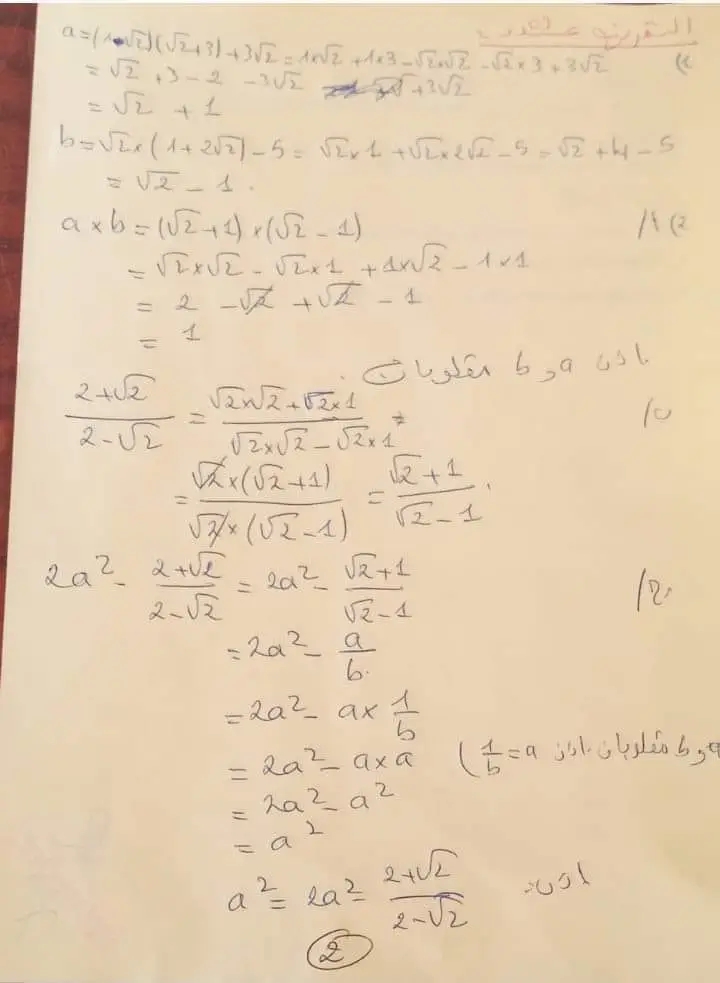 التمرين عدد 2
1) a=(1-√2)(√2+3)+3√2=1×√2+1×3-√2×√2-√2×3+3√2
=√2+3-2-3√2+3√2
=√2+1
b=√2×(1+2√2)-5=√2×1+√2×2√2-5=√2+4-5
=√2-1.
2) أ/ a×b=(√2+1)×(√2-1)
=√2×√2-√2×1+1×√2-1×1
=2-√2+√2-1
=1
اذن a و b مقلوبان.
ب/ (2+√2)/(2-√2)=(√2×√2+√2×1)/(√2×√2-√2×1)=
=(√2×(√2+1))/(√2×(√2-1))=(√2+1)/(√2-1).
2a²-(2+√2)/(2-√2)=2a²-(√2+1)/(√2-1)
=2a²-a/b.
=2a²-a×1/b
=2a²-a×a (1/b=a a و b مقلوبان اذن
=2a²-a²
=a²
اذن a²=2a²-(2+√2)/(2-√2)
2